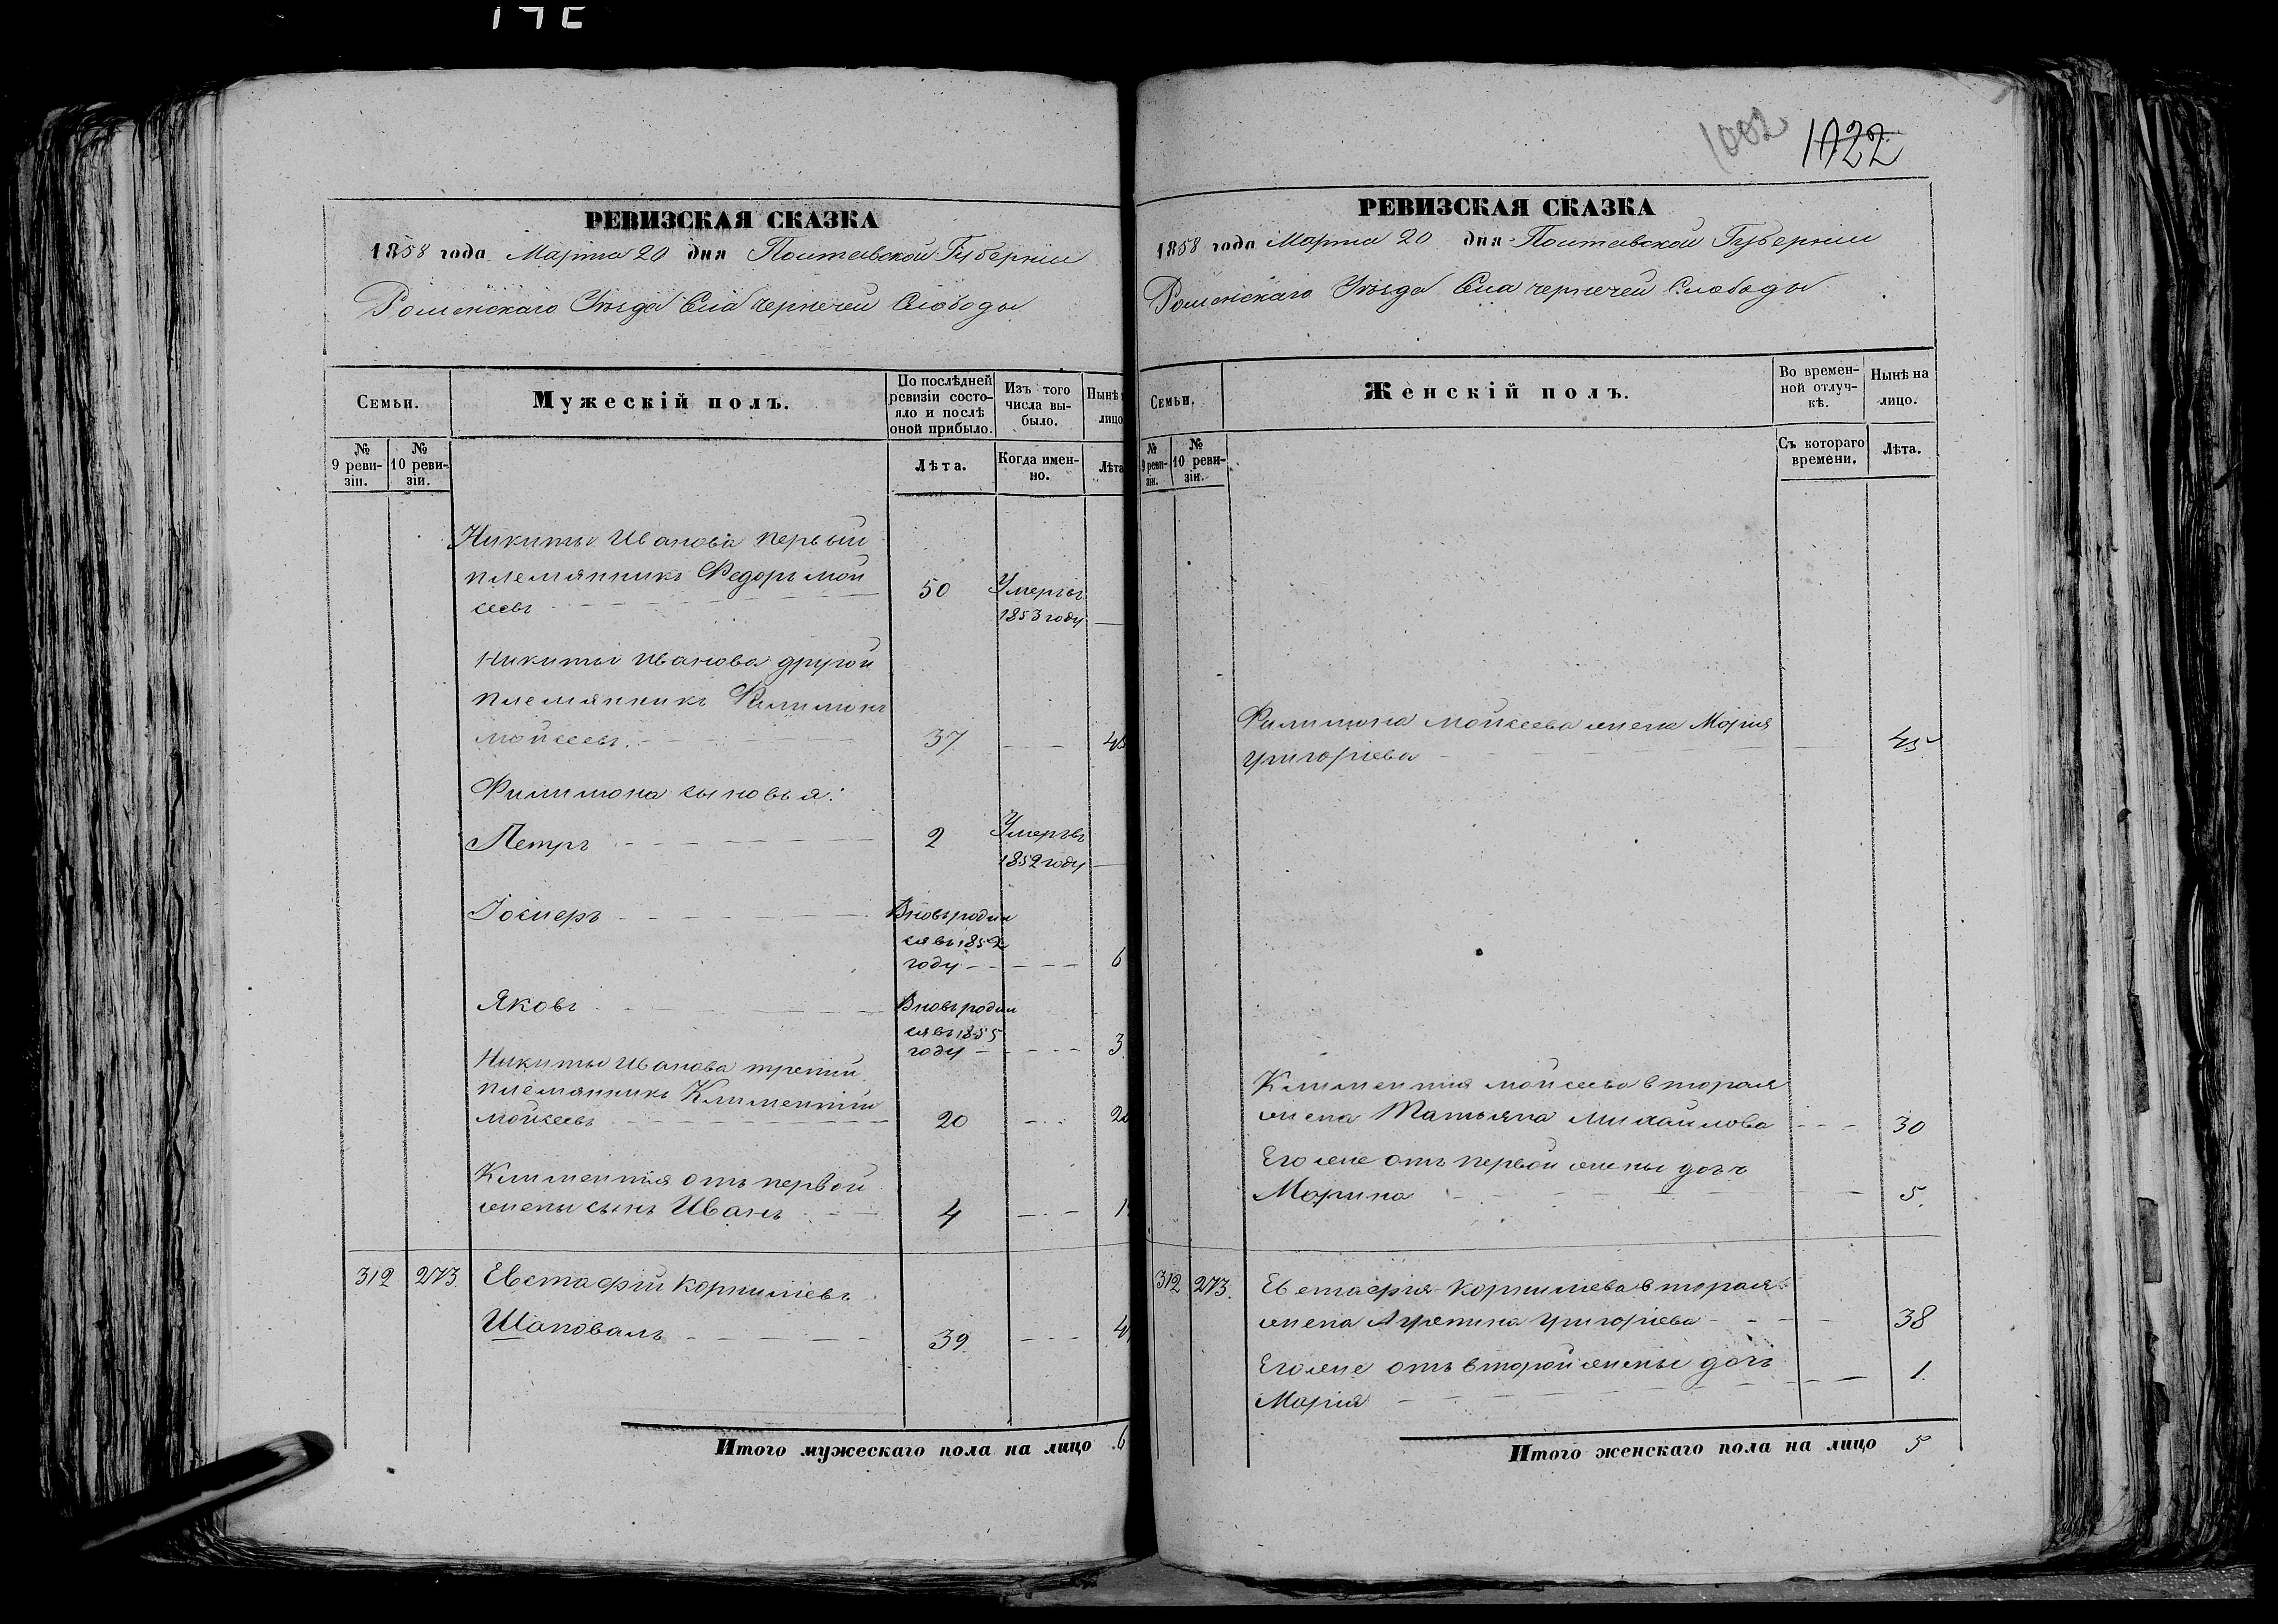 1002 1022
РЕВИЗСКАЯ СКАЗКА
1858 года Марта 20 дня Полтавской Губернии
Роменскаго Уѣзда Села Чернечей Слободы
Семьи.
Мужескій полъ.
По послѣдней ревизіи состояло и послѣ оной прибыло.
Изъ того числа выбыло.
Нынѣ
лицо
№ 9 ревизіи.
№ 10 ревизіи.
Лѣта.
Когда именно.
Лѣта
Никиты Иванова первый
племянникъ Федоръ Мой
сеевъ 50 Умеръ въ
1853 году
Никиты Иванова другой
племянникъ Филимонъ
Мойсеевъ 37
Филимона сыновья:
Петръ 2 Умеръ въ
1852 году
Іосиеръ Вновь родил
ся въ 1852
году 6
Яковъ Вновь родил
ся въ 1855
году 3
Никиты Иванова третий
племянникъ Климентий
Мойсеевъ 20
Климентия отъ первой
жены сынъ Иванъ 4
312 273. Евстафий Корнилиевъ
Шаповалъ 39.
Итого мужескаго пола на лицо 6
РЕВИЗСКАЯ СКАЗКА
1858 года Марта 20 дня Полтавской Губернии
Роменскаго Уѣзда Села Чернечей Слободы
Семьи.
Женскій полъ.
Во временной отлучкѣ.
Нынѣ на лицо.
№ 9 ревизіи.
№ 10 ревизіи.
Съ котораго времени.
Лѣта.
Филимона Мойсеева жена Мария
Григориева 45
Климентия Мойсеева вторая
жена Татьяна Михайлова 30
Его же отъ первой жены дочь
Марина 5.
312 273. Евстафия Корнилиева вторая
жена Агрепина Григориева 38
Его же отъ второй жены дочь
Мария 1.
Итого женскаго пола на лицо 5